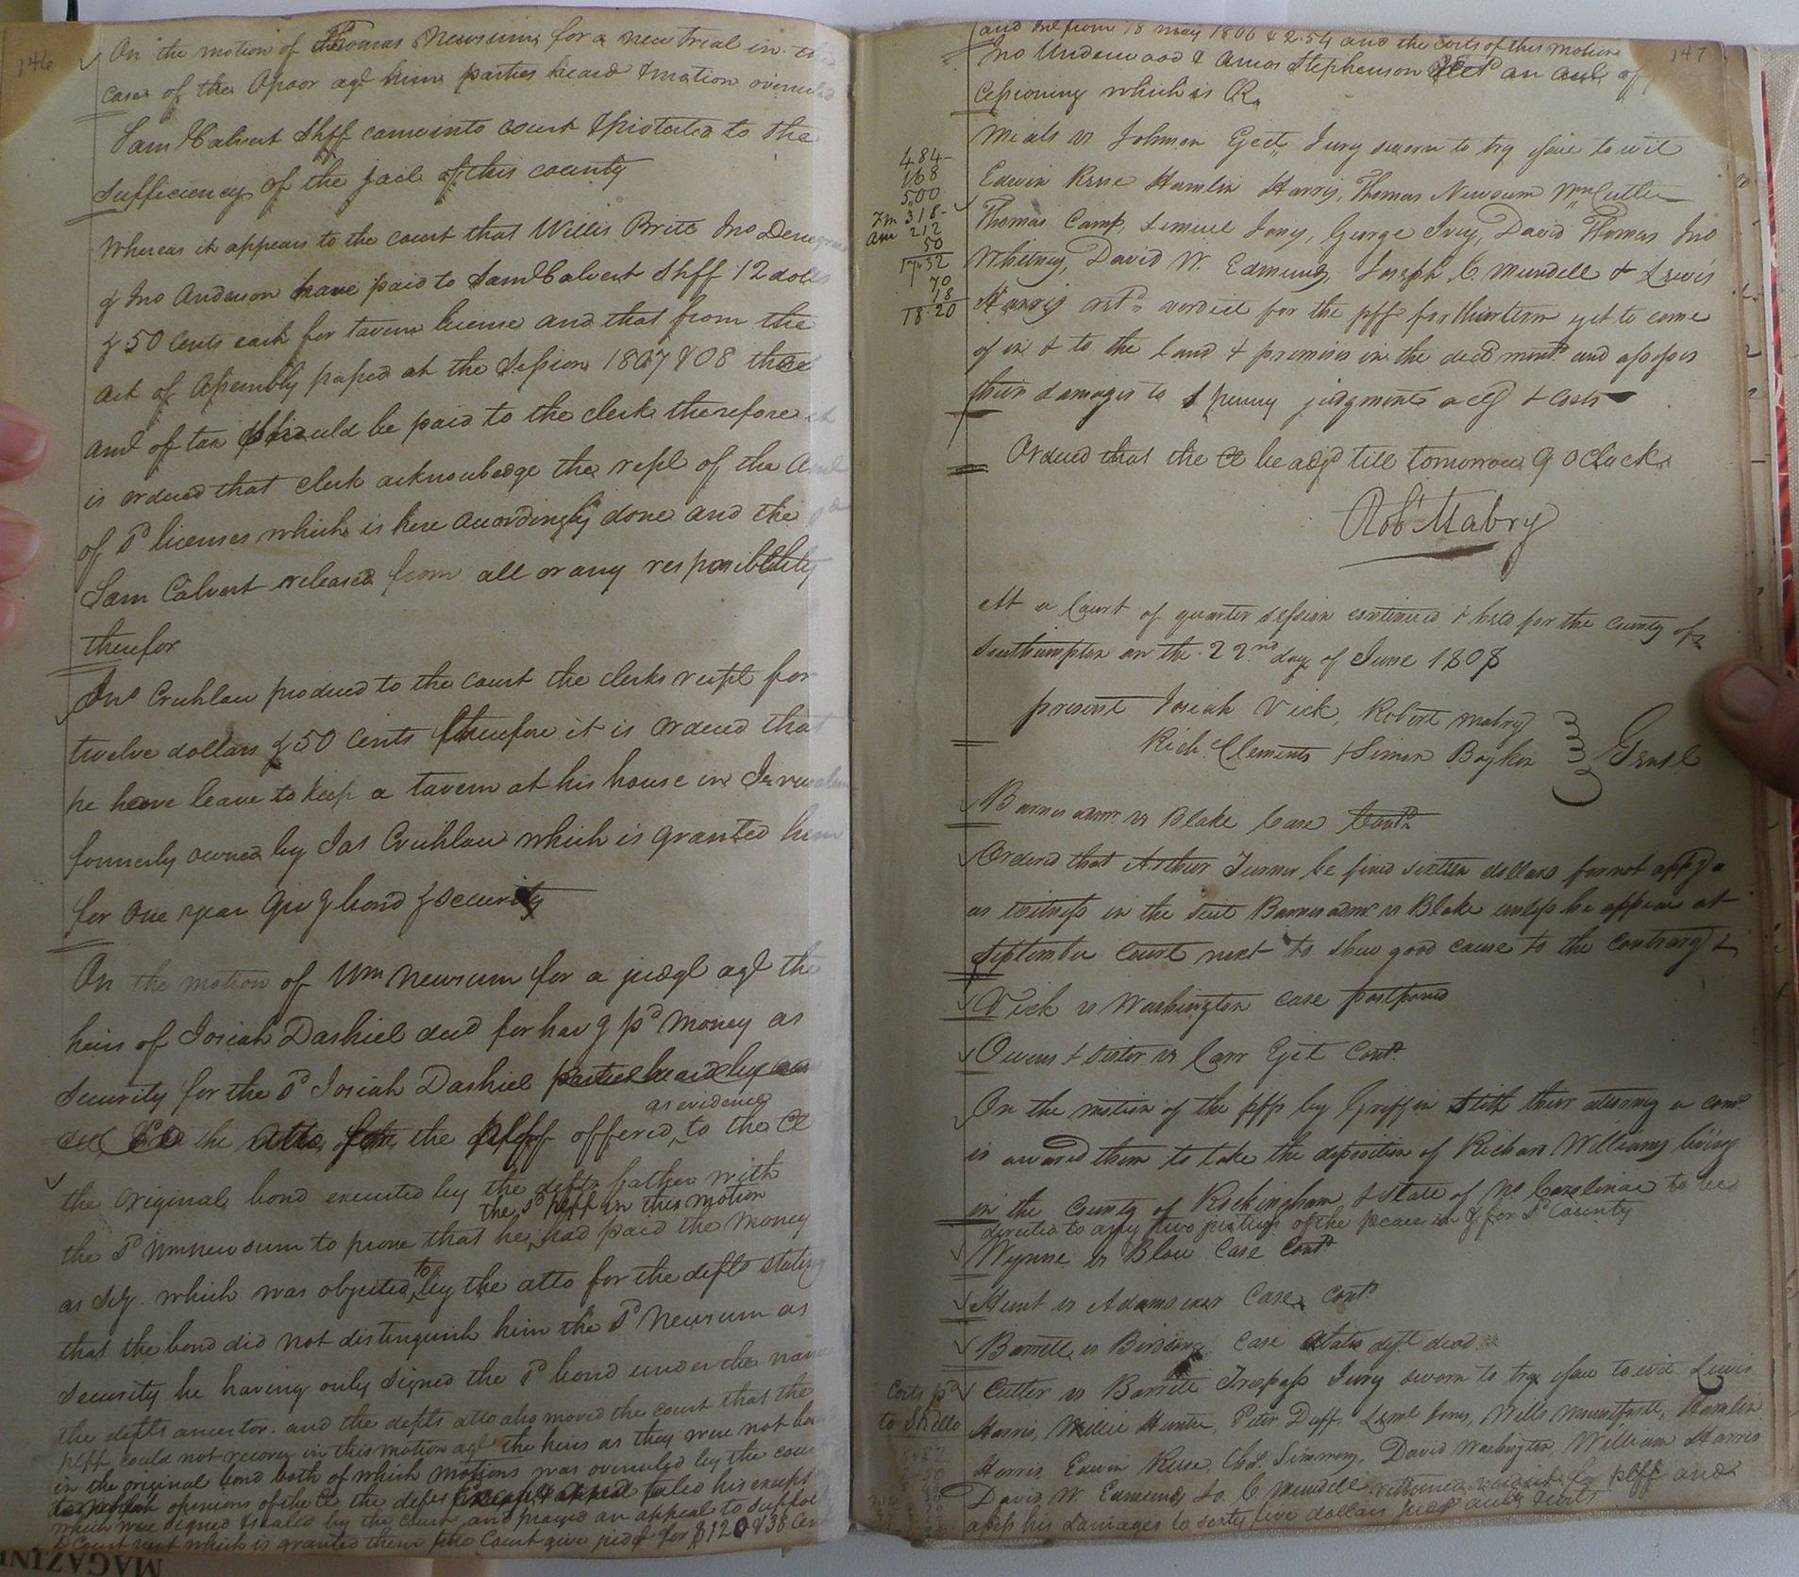 146
On the motion of Thomas Newsum for a new trial in the
cases of the Apoor agt him parties heard & motion overruled
Sam Calvert Shff came into court & protested to the
sufficiency of the jail of this county
Whereas it appears to the court that Willis Brite Jno
& Jno Anderson have paid to Sam Calvert Shff 12 dolls
& 50 Cents each for tavern license and that from the
act of Assembly passed at the Session 1807 & 08 the
amt of tax should be paid to the clerk therefore it
is ordered that clerk acknowledge the rept of the amt
of sd licenses which is here accordingly done and the sd
Sam Calvert released from all or any responsibility
therefor
Jno Crichlow produced to the court the clerks rect for
twelve dollars & 50 Cents therefore it is ordered that
he have leave to keep a tavern at his house in Jerusalem
formerly owned by Jas Crichlow which is granted him
for one year givg bond & security
On the motion of Wm Newsum for a judgt agt the
heirs of Josiah Dashiel decd for havg pd money as
security for the sd Josiah Dashiel parties heard by
the atto for the pltff offered as evidence to the Ct
the original bond executed by the defts father with
the sd Wm newsum to prove that he the sd pltff in this motion had paid the money
as sey. which was objected to by the atto for the defts stating
that the bond did not distinguish him the sd Newsum as
security he having only signed the sd bond under the name
the defts ancestor. and the defts atto also moved the court that the
pltff could not recover in this motion agt the heirs as they were not bo
in the original bond both of which motions was overruled by the cou
opinions of the Ct the defts filed his except
which were signed & sealed by the court and prayed an appeal to
Court next which is granted them the Court give judgt for $120 & 38 Cen
147
and Int from 18 may 1806 & 2.54 and the costs of this motion
Jno Underwood & Amos Stephenson retd an acct of
cessioning which is OR
Meals vs Johnson Eject Jury sworn to try issue to wit
484
168
500
318
am 212
50
1732
70
18
18.20
Edwin Reese Hamlin Harris, Thomas Newsum Wm Cutler
Thomas Camp, Lemuel Jones, George Ivey, David Thomas Jno
Whitney, David W. Edmunds, Joseph C. Mundell & Lewis
Harris retd verdict for the pff for thin term yet to come
of in & to the Land & premises in the decl mentd and assess
their damages to 1 penny judgment accg & costs
Ordered that the Ct be adjd till tomorrow 9 oClock
Robt Mabry
At a Court of quarter session continued & held for the county of
Southampton on the 22nd day of June 1808
present Josiah Vick, Robert mabry
Rich Clements & Simon Boykin
Gent
Barnes admr vs Blake Case Contd
Ordered that Arthur Turner be fined sixteen dollars for not appg
as witness in the suit Barnes admr vs Blake unless he appear at
September court next to shew good cause to the contrary
Vick vs Washington case postponed
Owens & sister vs Carr Ejet Contd
On the motion of the pffs by Griffin Stith their attorney a comn
is awared them to take the deposition of Richard Williams living
in the County of Rockingham & State of No Carolina to be
directed to any two justices of the peace in & for sd County
Wynne vs Blow Case Contd
Hunt vs Adams Case Contd
Barrett vs case abates deft dead
Costs pd
to Shelto
Cutler vs Barrett Trespass Jury sworn to try issue to wit Lewis
Harris, Willie Hunter, Peter Duff Leml Jones, Wills Mountfort, Hamlin
Harris, Edwin Reese, Chas. Simmons, David Washington William Harris
David W. Edmunds Jo. C Mundell returned verdict for pltff and
assess his damages to sixty five dollars judgt and costs